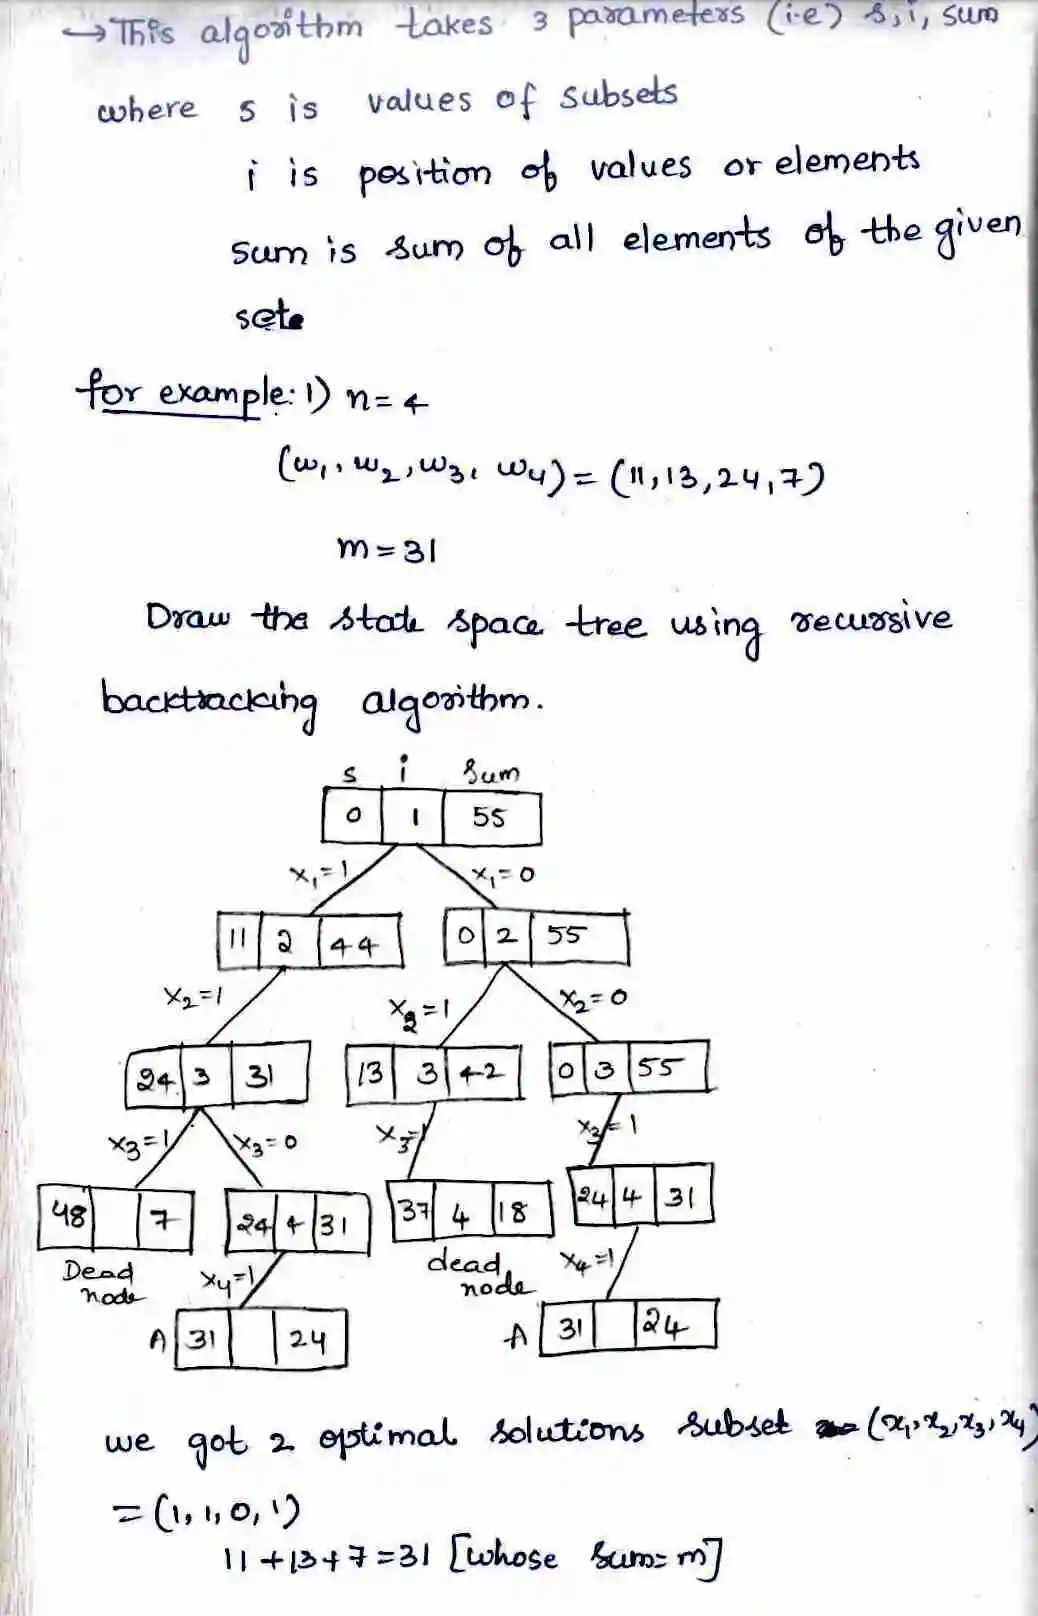 → This algorithm takes 3 parameters (i.e) s, i, sum
where s is values of subsets
i is position of values or elements
sum is sum of all elements of the given
set.
for example: 1) n = 4
(w₁, w₂, w₃, w₄) = (11, 13, 24, 7)
m = 31
Draw the state space tree using recursive
backtracking algorithm.
s i Sum
0 1 55
x₁=1 x₁=0
11 2 44 0 2 55
x₂=1 x₂=1 x₂=0
24 3 31 13 3 42 0 3 55
x₃=1 x₃=0 x₃=1 x₃=1
48 7 24 4 31 37 4 18 24 4 31
Dead node x₄=1 dead node x₄=1
A 31 24 A 31 24
we got 2 optimal solutions subset (x₁, x₂, x₃, x₄)
= (1, 1, 0, 1)
11 + 13 + 7 = 31 [whose sum = m]